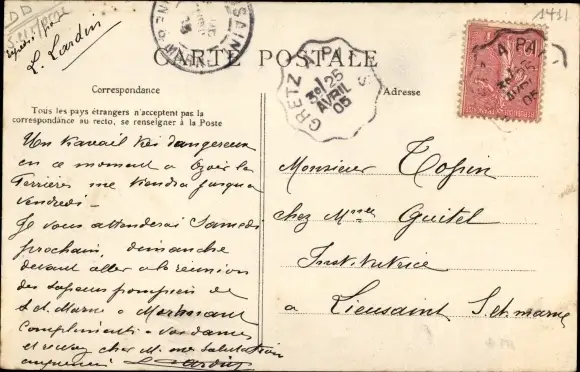 1411
L. Lardin
CARTE POSTALE
Correspondance
Adresse
Tous les pays étrangers n'acceptent pas la
correspondance au recto, se renseigner à la Poste
GRETZ A PARIS
25
AVRIL
05
Un travail très dangereux
en ce moment a Ozoir la
Ferrières me tiendra jusqu'a
Vendredi -
Je vous attenderai Samedi
prochain, dimanche
devant aller a la réunion
des sapeurs pompiers de
S. et. Marne a Mormant
Compliments a vos dames
et recevez cher M. mes salutations
L. Lardin
Monsieur Topin
chez Mme Guitel
Institutrice
a Lieusaint S. et marne